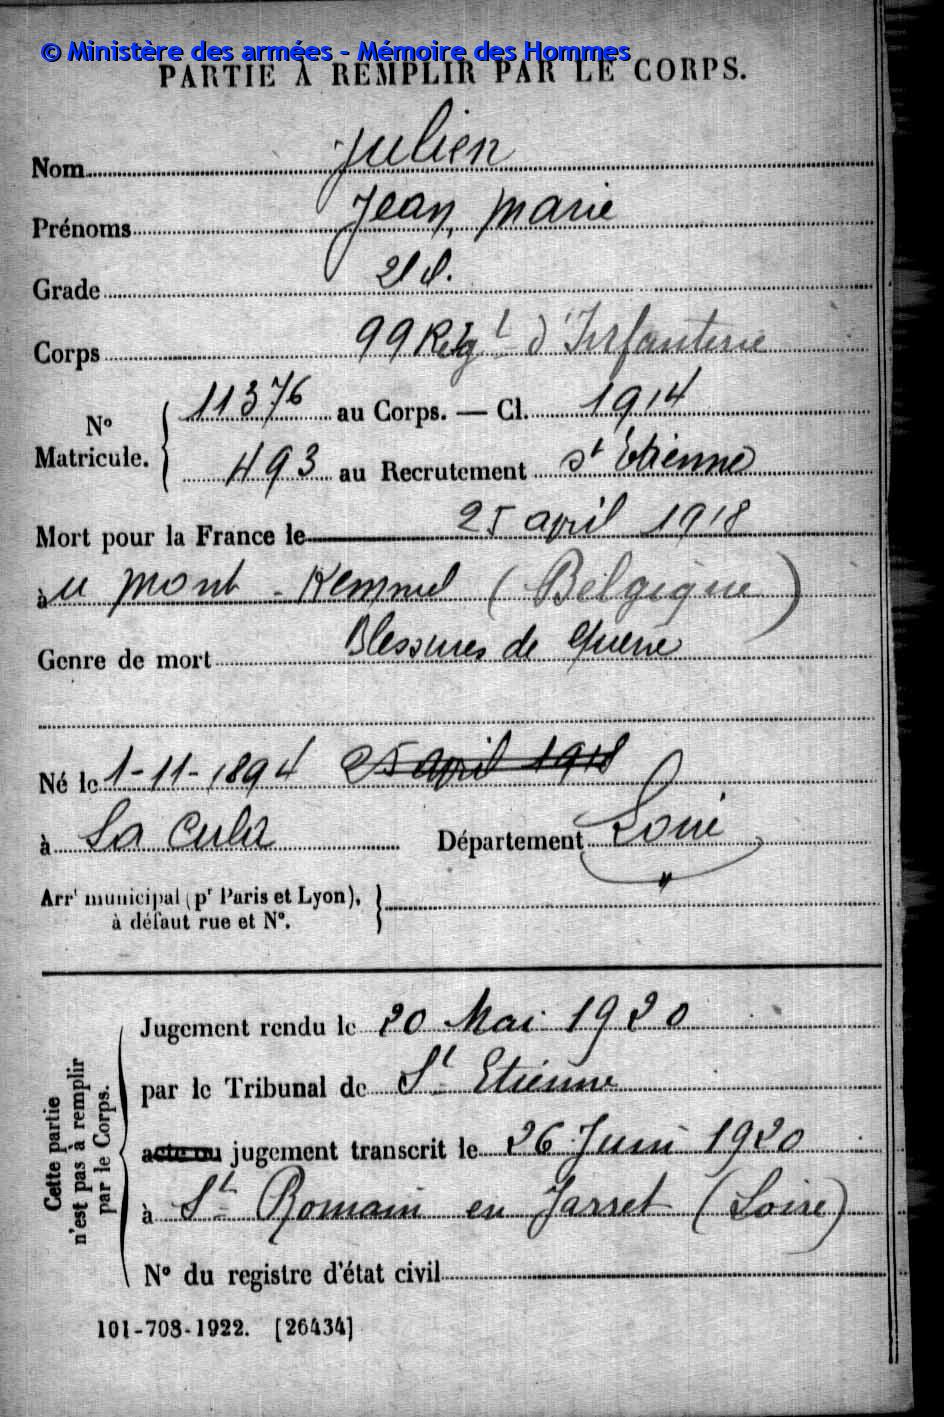 © Ministère des armées - Mémoire des Hommes
PARTIE À REMPLIR PAR LE CORPS.
Nom Julien
Prénoms Jean, Marie
Grade
Corps 99 Regt d'Infanterie
No Matricule. 11376 au Corps. — Cl. 1914
493 au Recrutement St Etienne
Mort pour la France le 25 avril 1918
à u Mont-Kemmel (Belgique)
Genre de mort Blessures de Guerre
Né le 1-11-1894 25 avril 1918
à La Cula Département Loire
Arrt municipal (pr Paris et Lyon),
à défaut rue et No.
Cette partie
n'est pas à remplir
par le Corps.
Jugement rendu le 20 Mai 1920
par le Tribunal de St Etienne
acte ou jugement transcrit le 26 Juin 1920
à St Romain en Jarret (Loire)
No du registre d'état civil
101-708-1922. [26434]